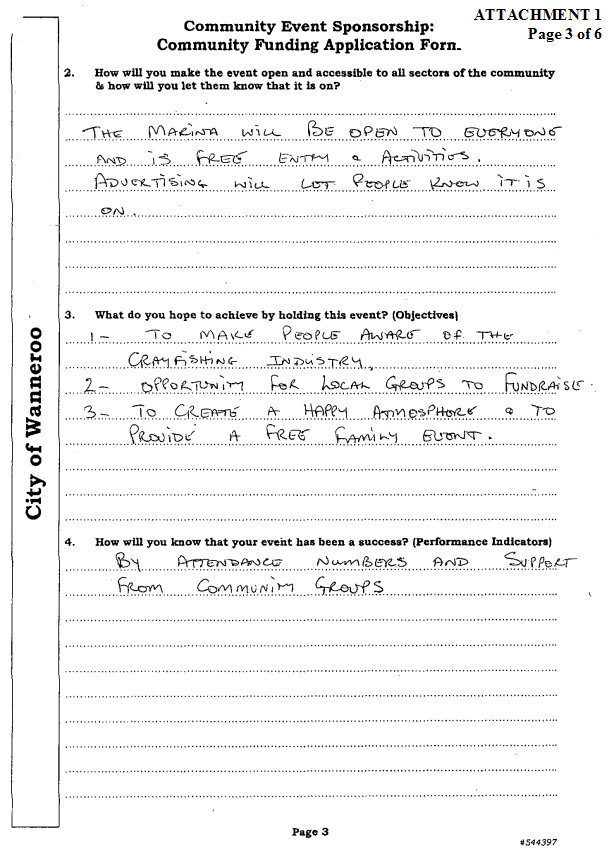 ATTACHMENT 1
Page 3 of 6
Community Event Sponsorship:
Community Funding Application Form.
2. How will you make the event open and accessible to all sectors of the community
& how will you let them know that it is on?
THE MARINA WILL BE OPEN TO EVERYONE
AND IS FREE ENTRY & ACTIVITIES.
ADVERTISING WILL LET PEOPLE KNOW IT IS
ON.
3. What do you hope to achieve by holding this event? (Objectives)
1- TO MAKE PEOPLE AWARE OF THE
CRAYFISHING INDUSTRY.
2- OPPORTUNITY FOR LOCAL GROUPS TO FUNDRAISE.
3- TO CREATE A HAPPY ATMOSPHERE & TO
PROVIDE A FREE FAMILY EVENT.
4. How will you know that your event has been a success? (Performance Indicators)
BY ATTENDANCE NUMBERS AND SUPPORT
FROM COMMUNITY GROUPS
City of Wanneroo
Page 3
#544397